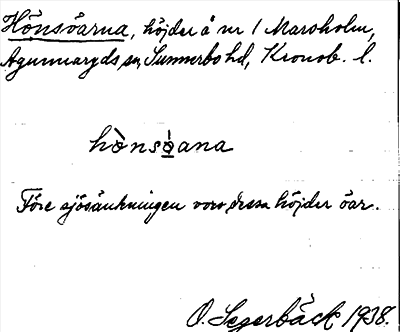 Hönsöarna, höjder å nr 1 Maroholm,
Agunnaryds sn, Sunnerbo hd, Kronob. l.
hò̀nsò̲ana
Före sjösänkningen voro dessa höjder öar.
O. Segerbäck 1938.